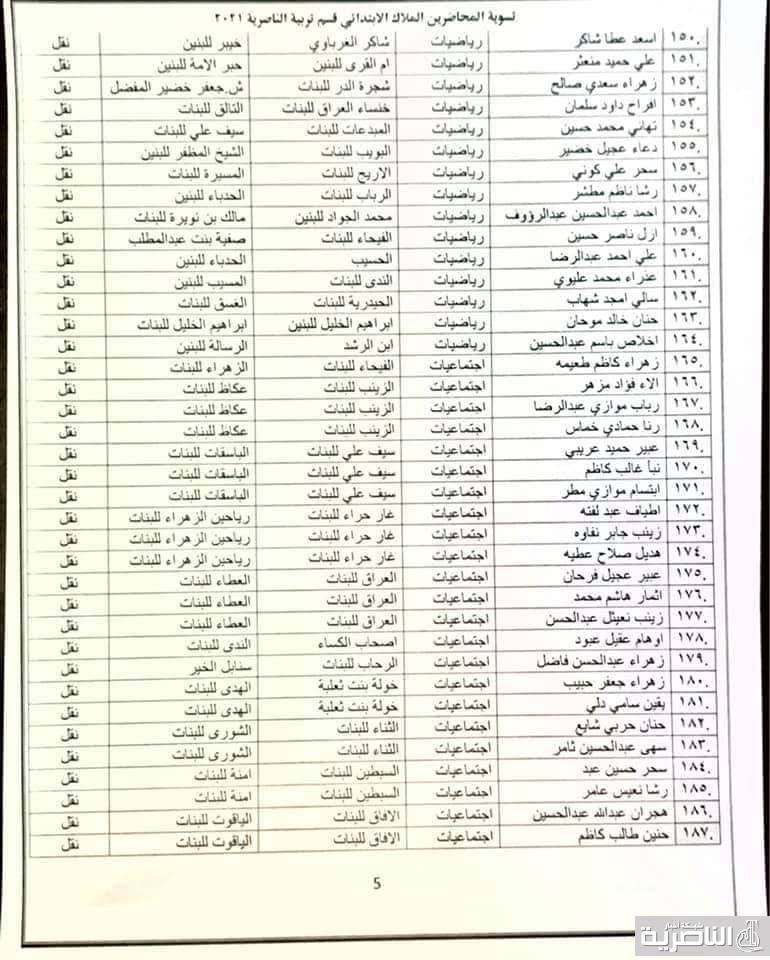 تسوية المحاضرين الملاك الابتدائي قسم تربية الناصرية ٢٠٢١
١٥٠. اسعد عطا شاكر رياضيات شاكر الغرباوي خيبر للبنين نقل
١٥١. علي حميد منعثر رياضيات ام القرى للبنين حبر الامة للبنين نقل
١٥٢. زهراء سعدي صالح رياضيات شجرة الدر للبنات ش.جعفر خضير المفضل نقل
١٥٣. افراح داود سلمان رياضيات خنساء العراق للبنات التالق للبنات نقل
١٥٤. تهاني محمد حسين رياضيات المبدعات للبنات سيف علي للبنات نقل
١٥٥. دعاء عجيل خضير رياضيات البويب للبنات الشيخ المظفر للبنين نقل
١٥٦. سحر علي كوني رياضيات الاريج للبنات المسيرة للبنات نقل
١٥٧. رشا ناظم مطشر رياضيات الرباب للبنات الحدباء للبنين نقل
١٥٨. احمد عبدالحسين عبدالرؤوف رياضيات محمد الجواد للبنين مالك بن نويرة للبنات نقل
١٥٩. ازل ناصر حسين رياضيات الفيحاء للبنات صفية بنت عبدالمطلب نقل
١٦٠. علي احمد عبدالرضا رياضيات الحسيب الحدباء للبنين نقل
١٦١. عذراء محمد عليوي رياضيات الندى للبنات المسيب للبنين نقل
١٦٢. سالي امجد شهاب رياضيات الحيدرية للبنات الغسق للبنات نقل
١٦٣. حنان خالد موحان رياضيات ابراهيم الخليل للبنين ابراهيم الخليل للبنات نقل
١٦٤. اخلاص باسم عبدالحسين رياضيات ابن الرشد الرسالة للبنين نقل
١٦٥. زهراء كاظم طعيمه اجتماعيات الفيحاء للبنات الزهراء للبنات نقل
١٦٦. الاء فؤاد مزهر اجتماعيات الزينب للبنات عكاظ للبنات نقل
١٦٧. رباب موازي عبدالرضا اجتماعيات الزينب للبنات عكاظ للبنات نقل
١٦٨. رنا حمادي خماس اجتماعيات الزينب للبنات عكاظ للبنات نقل
١٦٩. عبير حميد عريبي اجتماعيات سيف علي للبنات الباسقات للبنات نقل
١٧٠. نبأ غالب كاظم اجتماعيات سيف علي للبنات الباسقات للبنات نقل
١٧١. ابتسام موازي مطر اجتماعيات سيف علي للبنات الباسقات للبنات نقل
١٧٢. اطياف عبد لفته اجتماعيات غار حراء للبنات رياحين الزهراء للبنات نقل
١٧٣. زينب جابر نفاوه اجتماعيات غار حراء للبنات رياحين الزهراء للبنات نقل
١٧٤. هديل صلاح عطيه اجتماعيات غار حراء للبنات رياحين الزهراء للبنات نقل
١٧٥. عبير عجيل فرحان اجتماعيات العراق للبنات العطاء للبنات نقل
١٧٦. اثمار هاشم محمد اجتماعيات العراق للبنات العطاء للبنات نقل
١٧٧. زينب نعيثل عبدالحسن اجتماعيات العراق للبنات العطاء للبنات نقل
١٧٨. اوهام عقيل عبود اجتماعيات اصحاب الكساء الندى للبنات نقل
١٧٩. زهراء عبدالحسن فاضل اجتماعيات الرحاب للبنات سنابل الخير نقل
١٨٠. زهراء جعفر حبيب اجتماعيات خولة بنت ثعلبة الهدى للبنات نقل
١٨١. يقين سامي دلي اجتماعيات خولة بنت ثعلبة الهدى للبنات نقل
١٨٢. حنان حربي شايع اجتماعيات الثناء للبنات الشورى للبنات نقل
١٨٣. سهى عبدالحسين ثامر اجتماعيات الثناء للبنات الشورى للبنات نقل
١٨٤. سحر حسين عبد اجتماعيات السبطين للبنات امنة للبنات نقل
١٨٥. رشا نعيس عامر اجتماعيات السبطين للبنات امنة للبنات نقل
١٨٦. هجران عبدالله عبدالحسين اجتماعيات الافاق للبنات الياقوت للبنات نقل
١٨٧. حنين طالب كاظم اجتماعيات الافاق للبنات الياقوت للبنات نقل
5
شبكة اخبار
الناصرية